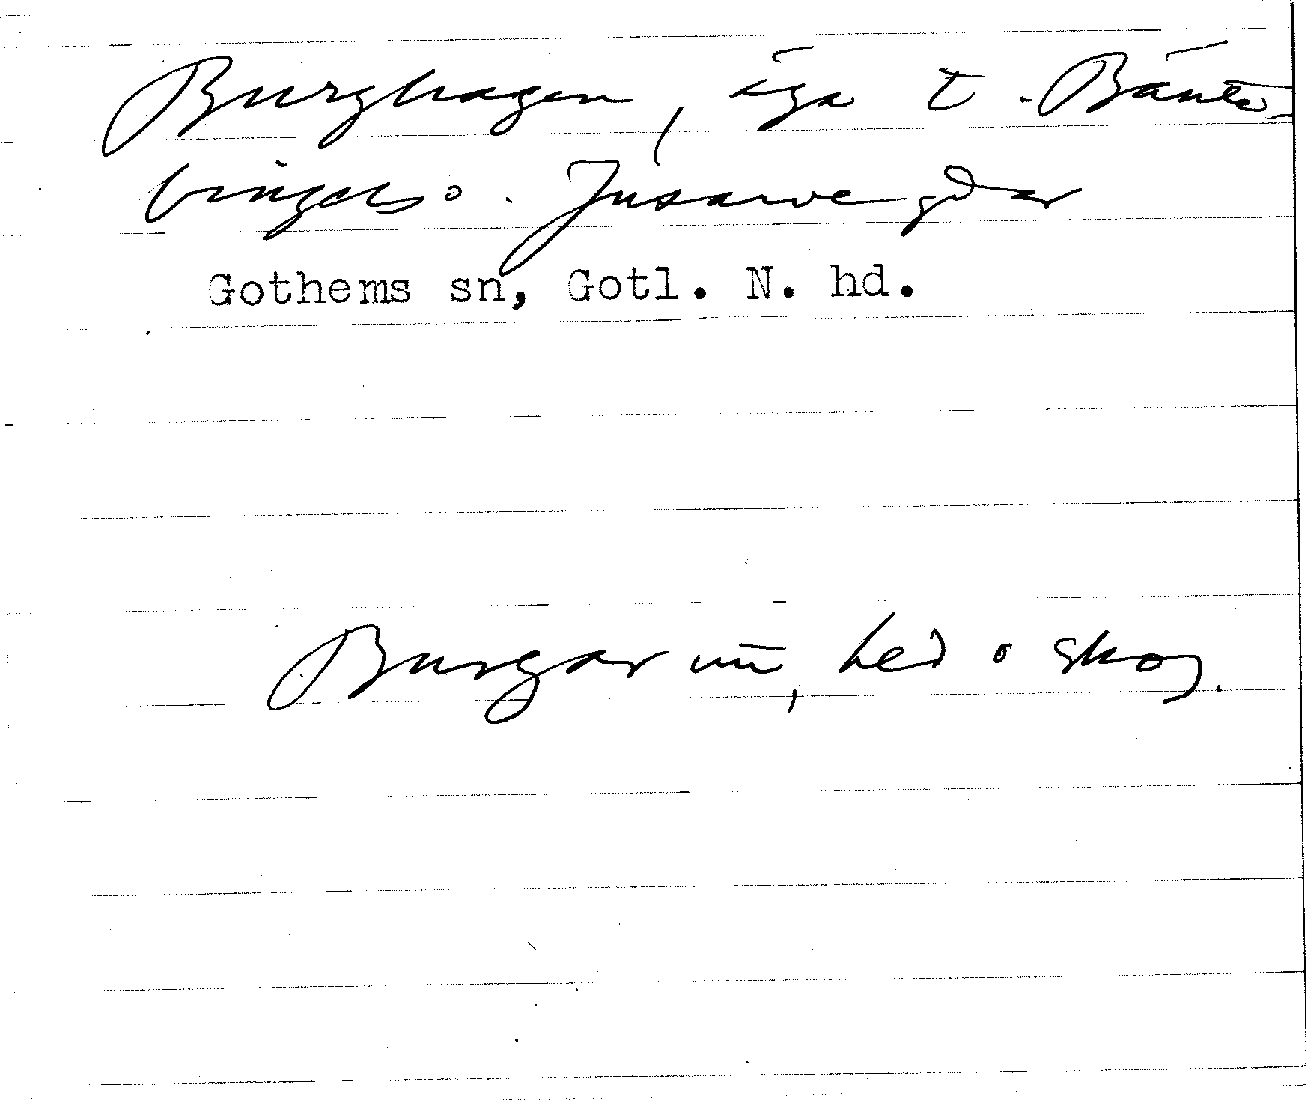 Burghagen, äga t. Bånta
vingels o. Jusarve gdar
Gothems sn, Gotl. N. hd.
Burgar un, hed o skog.